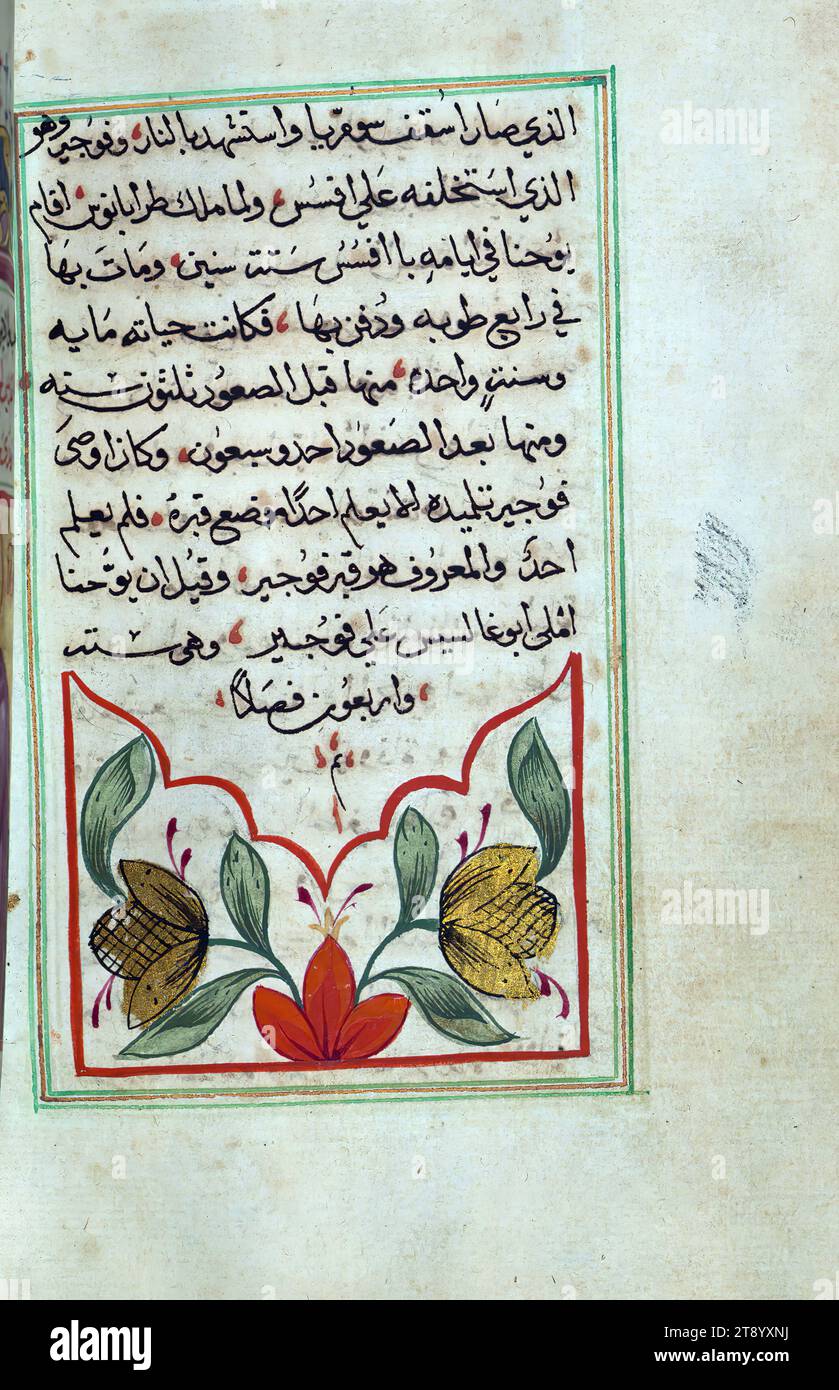 الذي صار اسقف سوقريا واستشهد بالنار، وفوجير وهو
الذي استخلفه علي افسس، ولما ملك طرابانوس اقام
يوحنا في ايامه با افسس ستة سنين، ومات بها
في رابع طوبه ودفن بها، فكانت حياته مايه
وسنةٍ واحده، منها قبل الصعود ثلثون سنه
ومنها بعد الصعود احد وسبعون، وكان اوصى
فوجير تلميده الا يعلم احدًا موضع قبره، فلم يعلم
احدٌ والمعروف هو قبر فوجير، وقيل ان يوحنا
املى ابوغالسيس علي فوجير، وهي ستة
واربعون فصلاً،
تم
alamy
Image ID: 2T8YXNJ
www.alamy.com